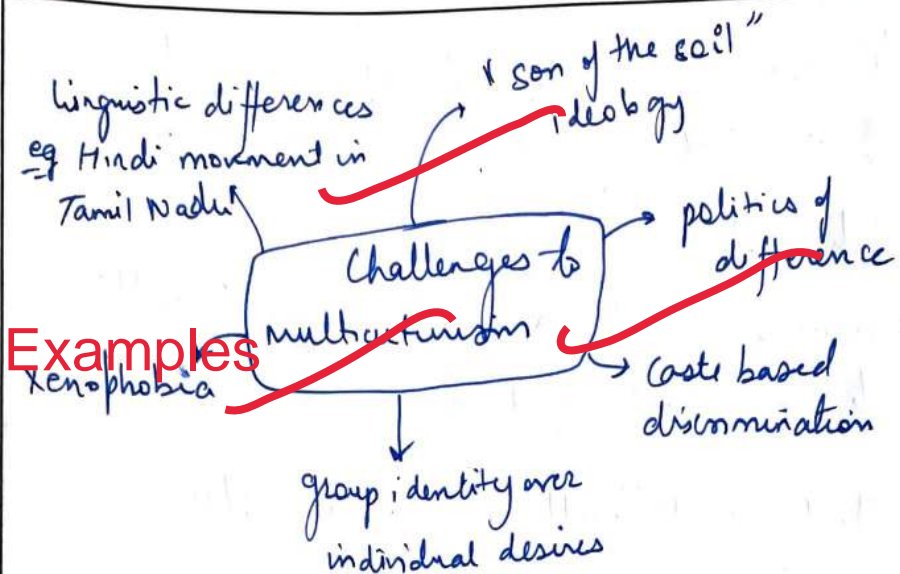 linguistic differences
eg Hindi movment in
Tamil Nadu
" son of the soil "
ideology
politics of
difference
Challenges to
multiculturism
Examples
xenophobia
caste based
discrimination
group identity over
individual desires